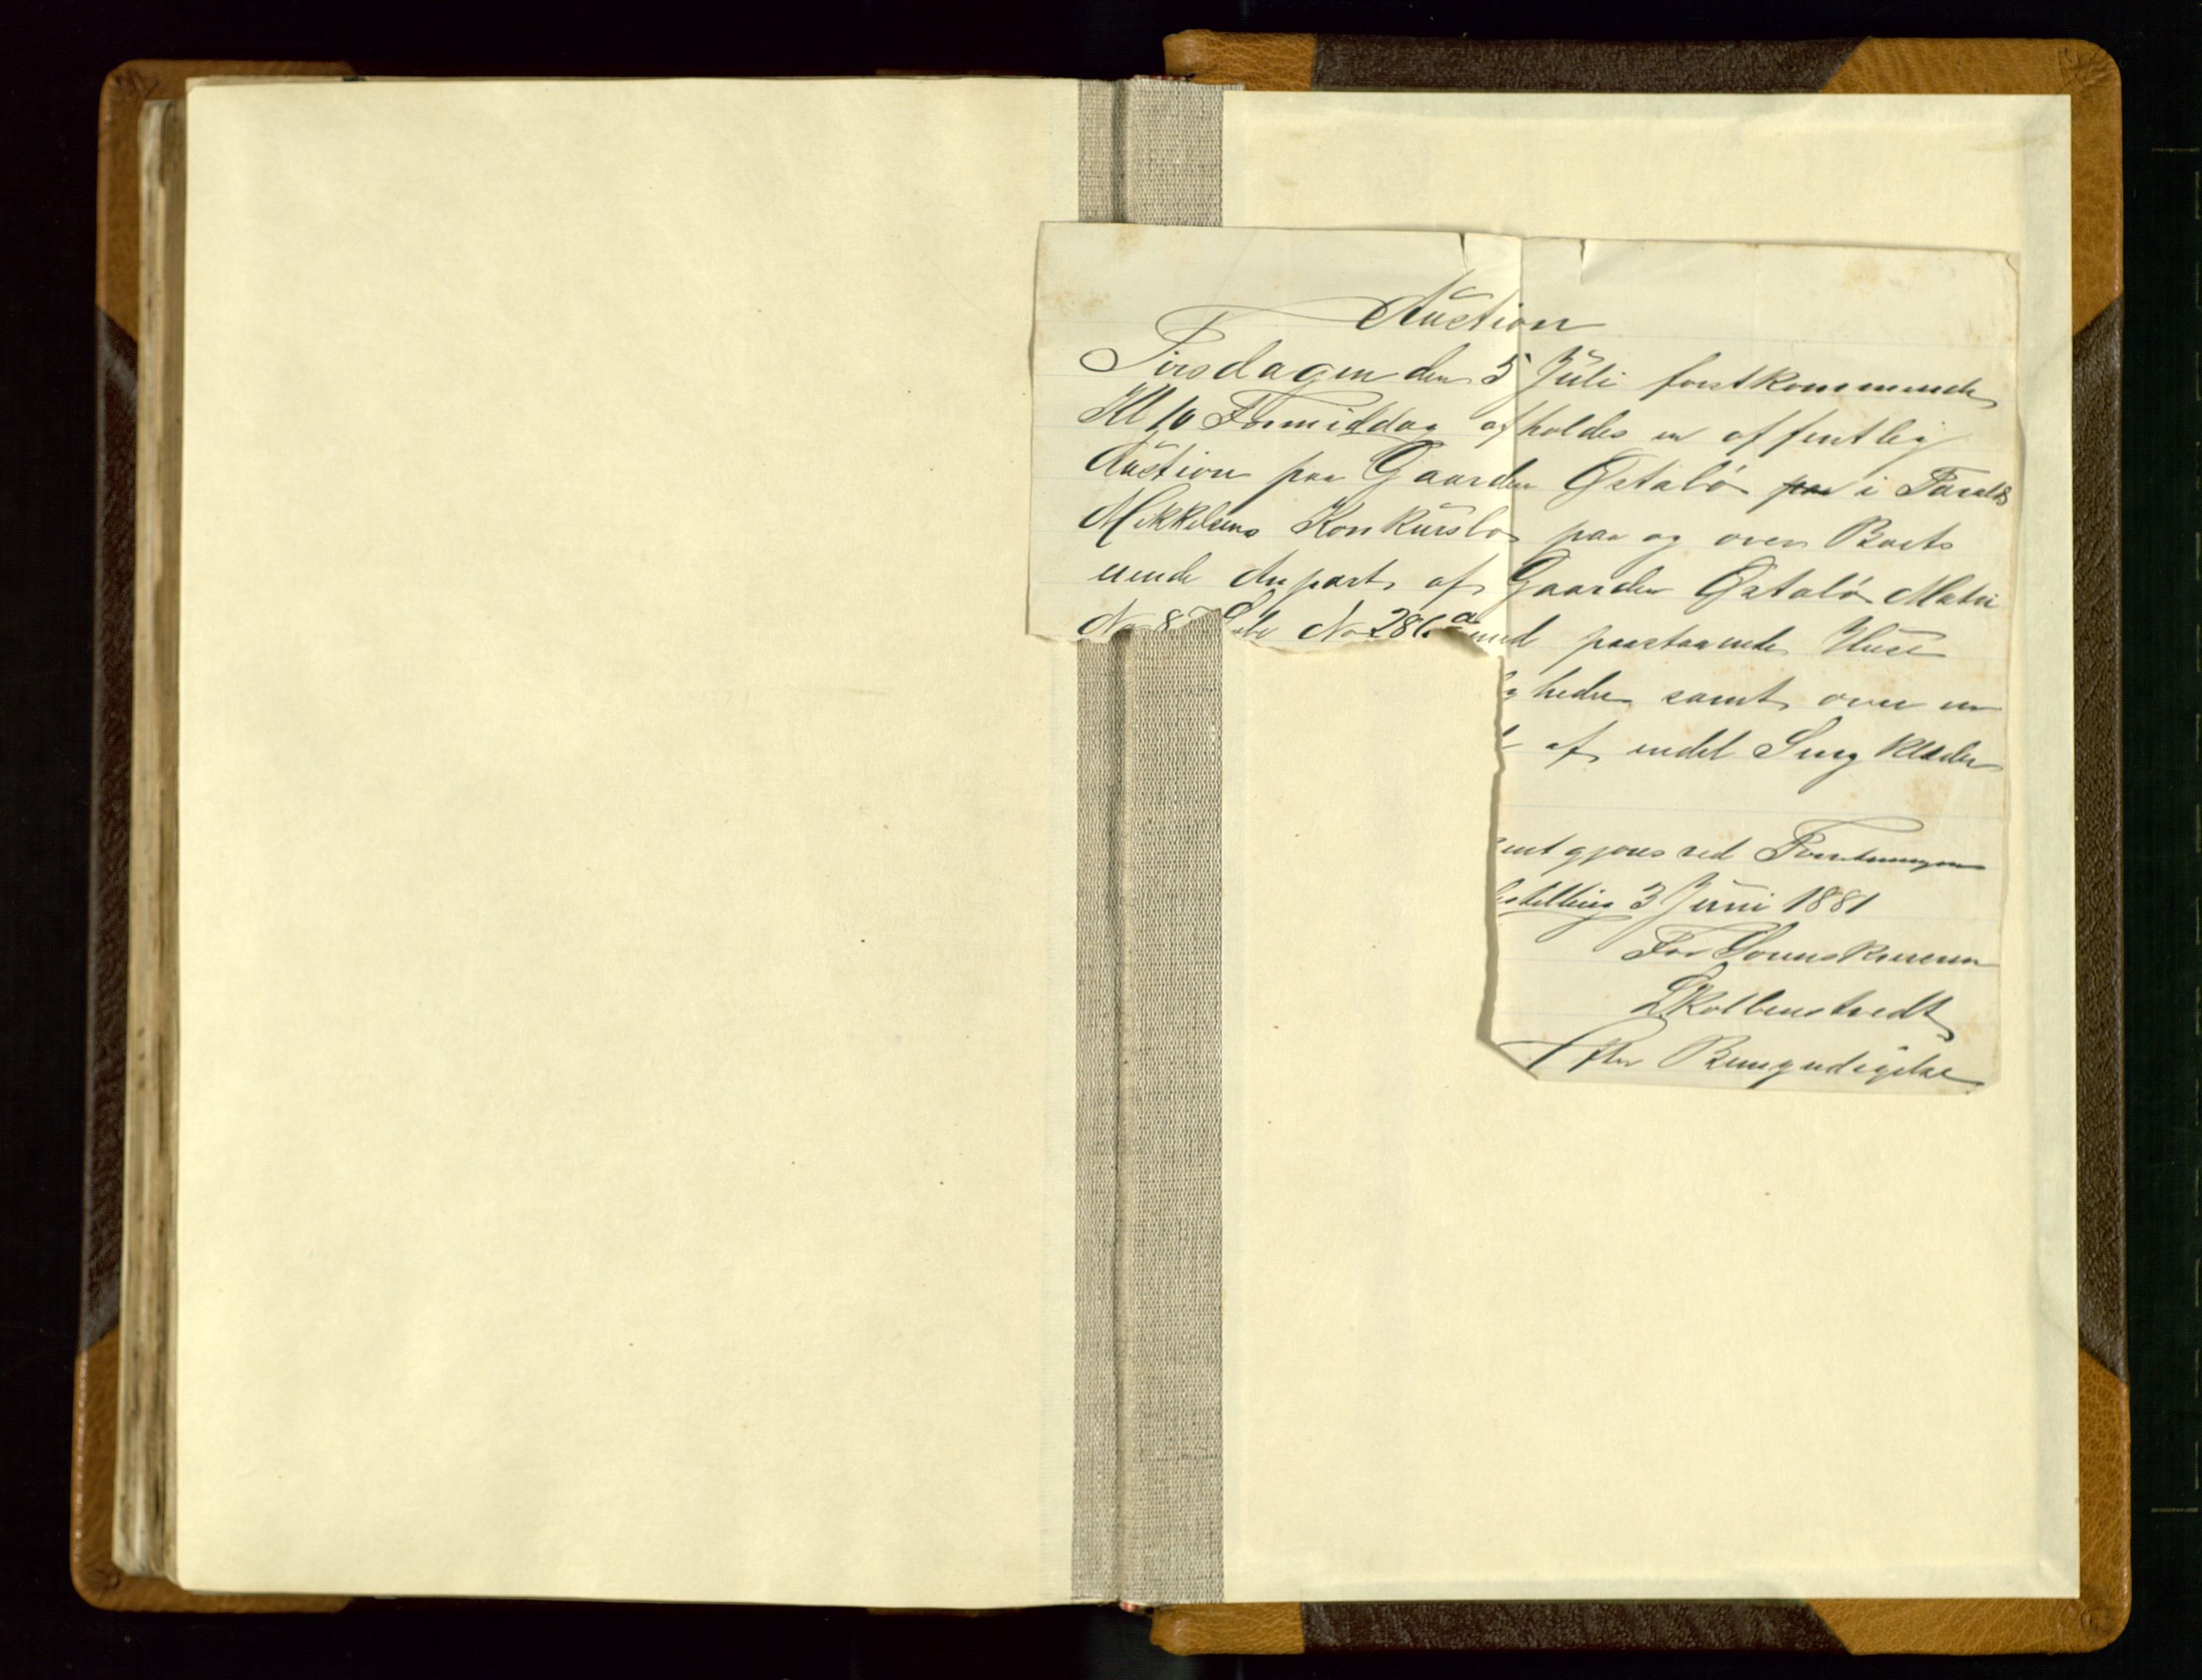 Auction
Tirsdagen den 5 Juli førstkommende
Kl 10 Formiddag afholdes en offentlig
Auction paa Gaarden Østabø paa i Taralds
Mikkelsens Konkursbo paa og over Boets
uende Anpart af Gaarden Østabø Matri
No 8 Løbe No 286a med paastaaende Huse
gheder samt over en
af endel Seng Klæder
ent gjøres ved Forretningen
3 Juni 1881
For Sorenskriveren
LKolbenstvedt
Efter Bemyndigelse